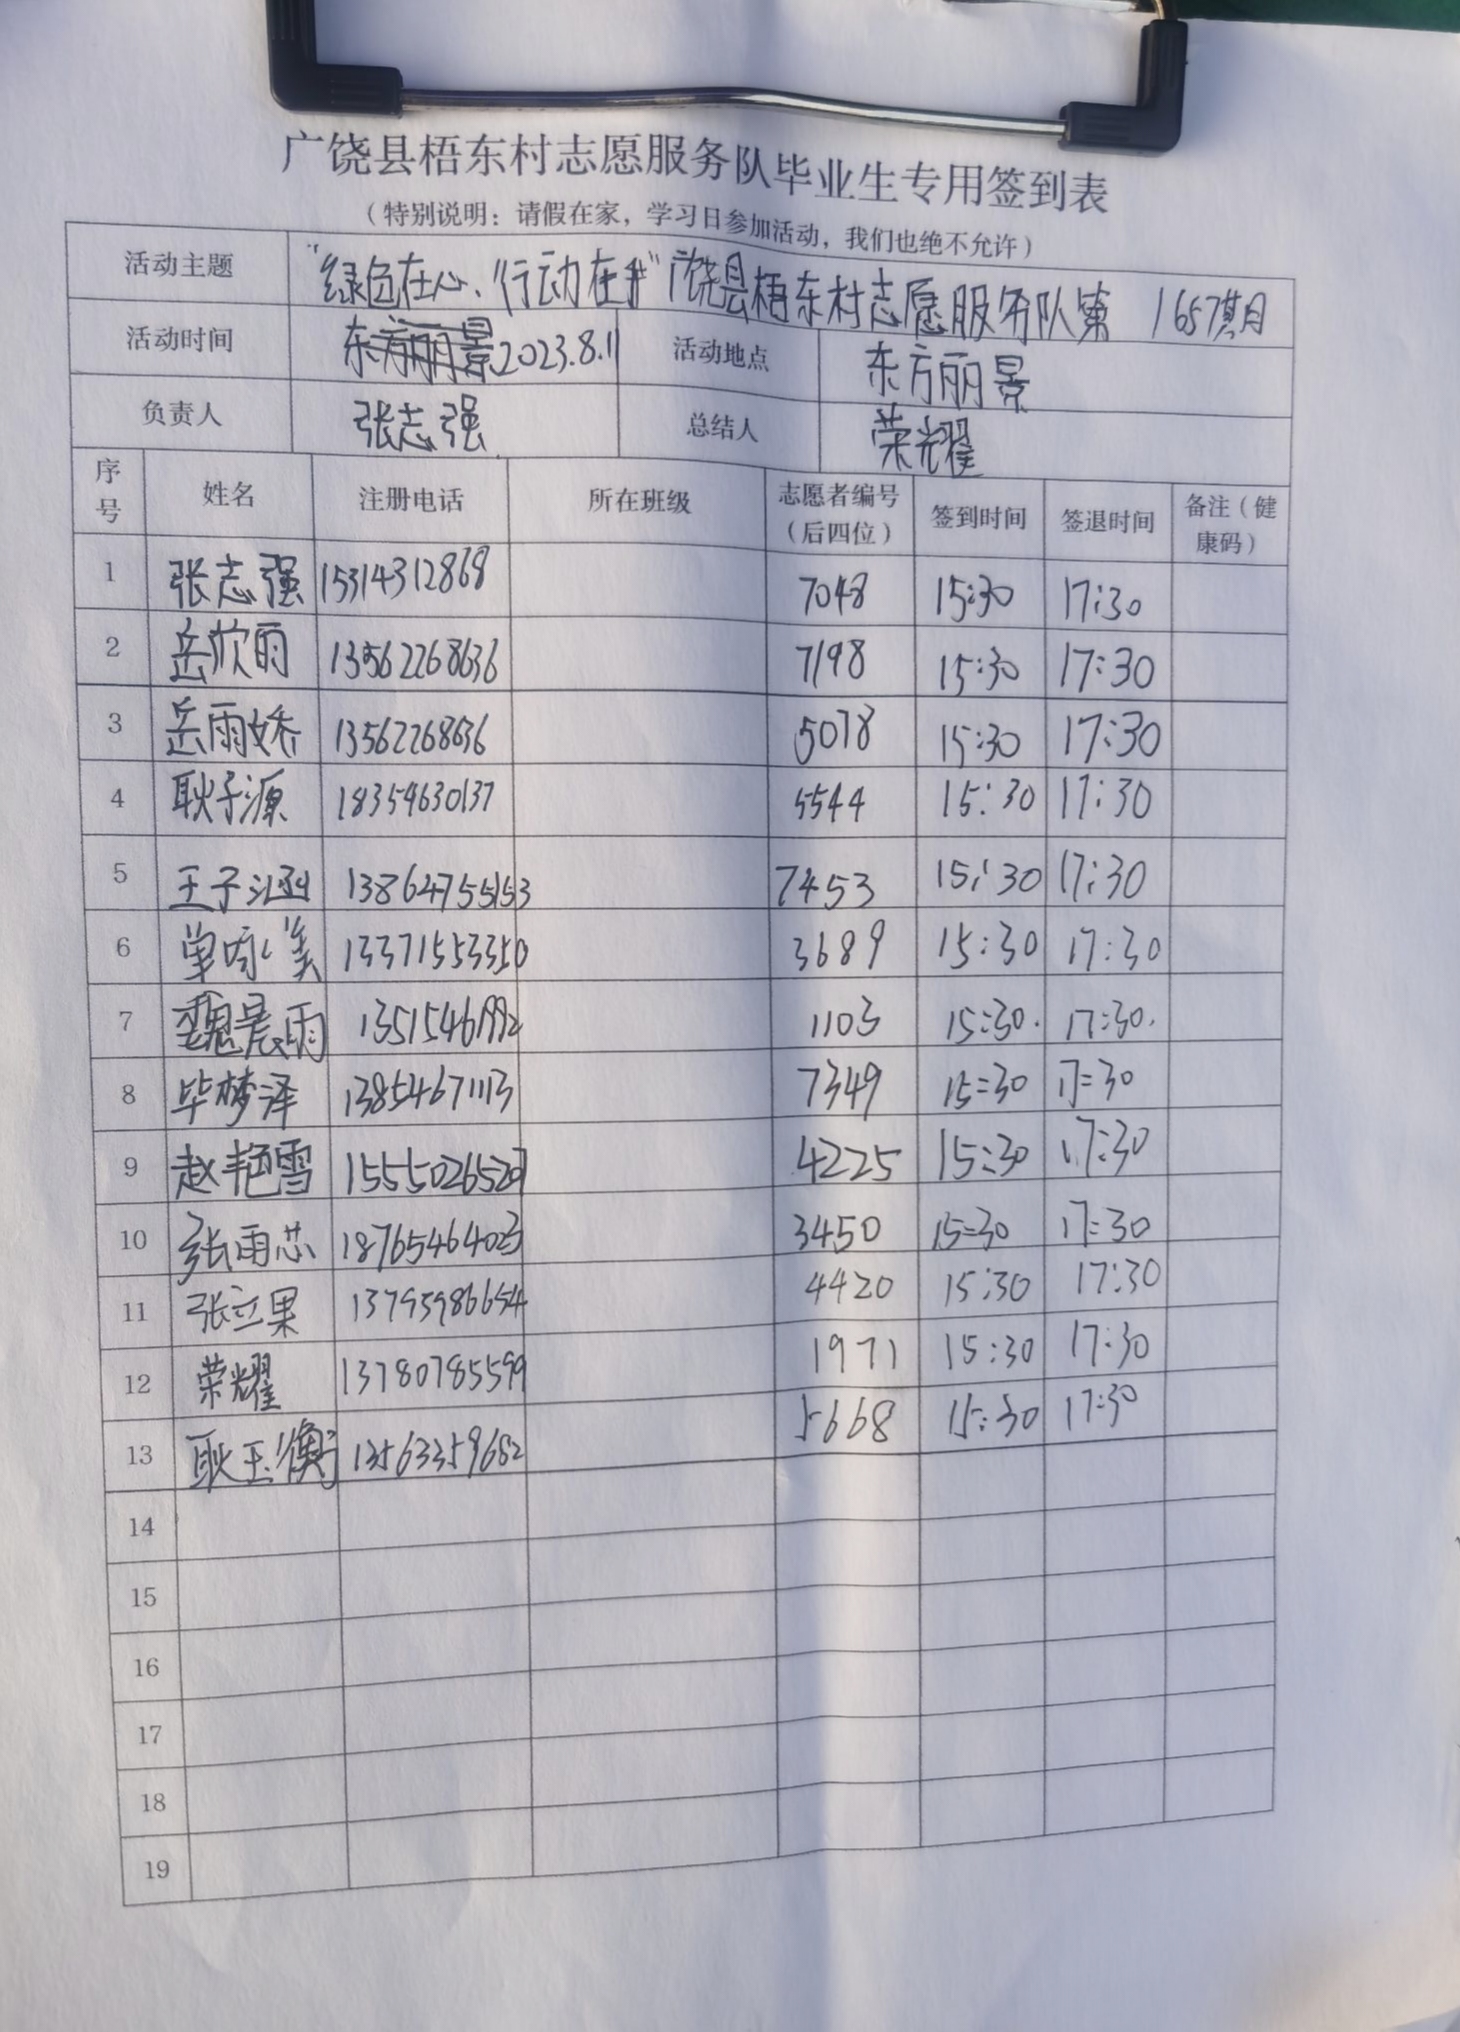 广饶县梧东村志愿服务队毕业生专用签到表
（特别说明：请假在家，学习日参加活动，我们也绝不允许）
活动主题 “绿色在心、行动在我”广饶县梧东村志愿服务队第 1657期
活动时间 东方丽景2023.8.11 活动地点 东方丽景
负责人 张志强 总结人 荣耀
序号 姓名 注册电话 所在班级 志愿者编号（后四位） 签到时间 签退时间 备注（健康码）
1 张志强 15314312868 7048 15:30 17:30
2 岳欣雨 13562268636 7198 15:30 17:30
3 岳雨娇 13562268636 5078 15:30 17:30
4 耿子源 18354630137 5544 15:30 17:30
5 王子涵 13864755153 7453 15:30 17:30
6 单咏美 13371553350 3689 15:30 17:30
7 魏晨雨 13515461992 1103 15:30. 17:30.
8 毕梦泽 13854671113 7349 15:30 17:30
9 赵艳雪 15550265207 4225 15:30 17:30
10 张雨芯 18765464023 3450 15:30 17:30
11 张立果 13795986654 4420 15:30 17:30
12 荣耀 13780785599 1971 15:30 17:30
13 耿玉衡 13563359682 5668 15:30 17:30
14
15
16
17
18
19